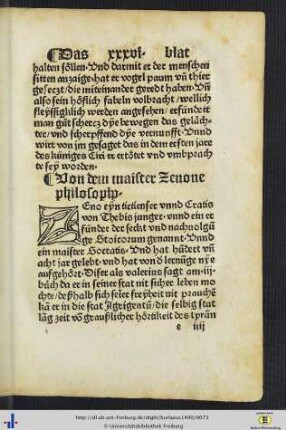 Das xxxvi. blat
halten söllen. Vnd darmit er der menschen
sitten anzaige. hat er vogel paum vñ thier
gesetzt/die miteinander geredt haben. Vñ
also sein höflich fabeln volbracht/wellich
fleyssigklich werden angesehen/erfindett
man gůt schertz dye bewegen das geläch-
ter/vnd scherpffend dye vernunfft. Vnnd
wirt von jm gesaget das in dem ersten jare
des küniges Ciri er ertötet vnd vmbprach
te sey worden.
Von dem maister Zenone
philosoph.
Zeno eyn tictienser vnnd Cratis
von Thebis junger. vnnd ein er
fünder der sect vnd nachuolgũ
ge Stoicorum genannt. Vnnd
ein maister Socratis. Vnd hat hũdert vñ
acht jar gelebt. vnd hat von ð lernũge nye
aufgehört. Diser als valerius sagt am .iij.
bůch da er in seiner stat nit sicher leben mo
chte/deßhalb sich seier freyheit nit prauchẽ
kã er in die stat Agrigentũ/die selbig stat
lãg zeit võ graußlicher hörtikeit des tyrãn
e iiij
http://dl.ub.uni-freiburg.de/diglit/burlaeus1490/0073
© Universitätsbibliothek Freiburg